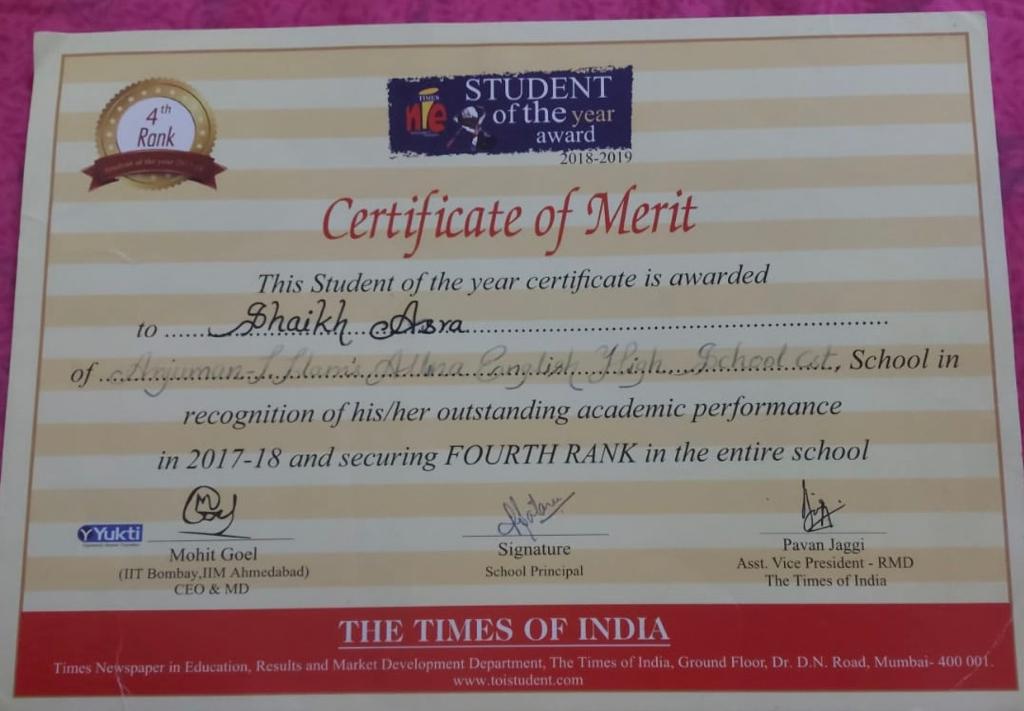 4th
Rank
TIMES
nie
STUDENT
of the year
award
2018-2019
Certificate of Merit
This Student of the year certificate is awarded
to Shaikh Asra
of Anjuman-I-Islam's Allana English High School cst, School in
recognition of his/her outstanding academic performance
in 2017-18 and securing FOURTH RANK in the entire school
Yukti
Mohit Goel
(IIT Bombay,IIM Ahmedabad)
CEO & MD
Signature
School Principal
Pavan Jaggi
Asst. Vice President - RMD
The Times of India
THE TIMES OF INDIA
Times Newspaper in Education, Results and Market Development Department, The Times of India, Ground Floor, Dr. D.N. Road, Mumbai- 400 001.
www.toistudent.com